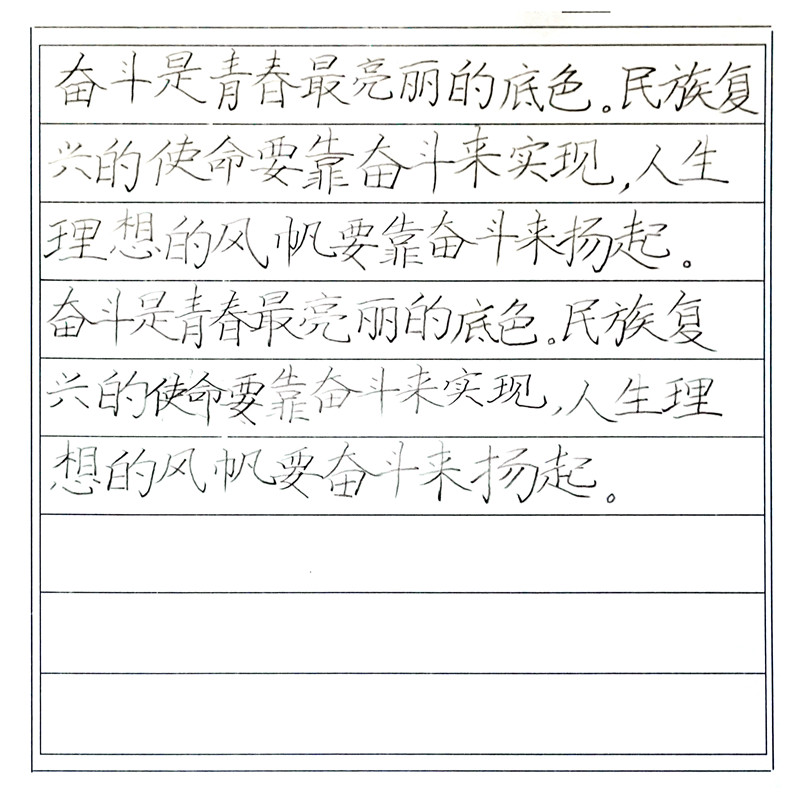 奋斗是青春最亮丽的底色。民族复
兴的使命要靠奋斗来实现,人生
理想的风帆要靠奋斗来扬起。
奋斗是青春最亮丽的底色。民族复
兴的使命要靠奋斗来实现,人生理
想的风帆要奋斗来扬起。